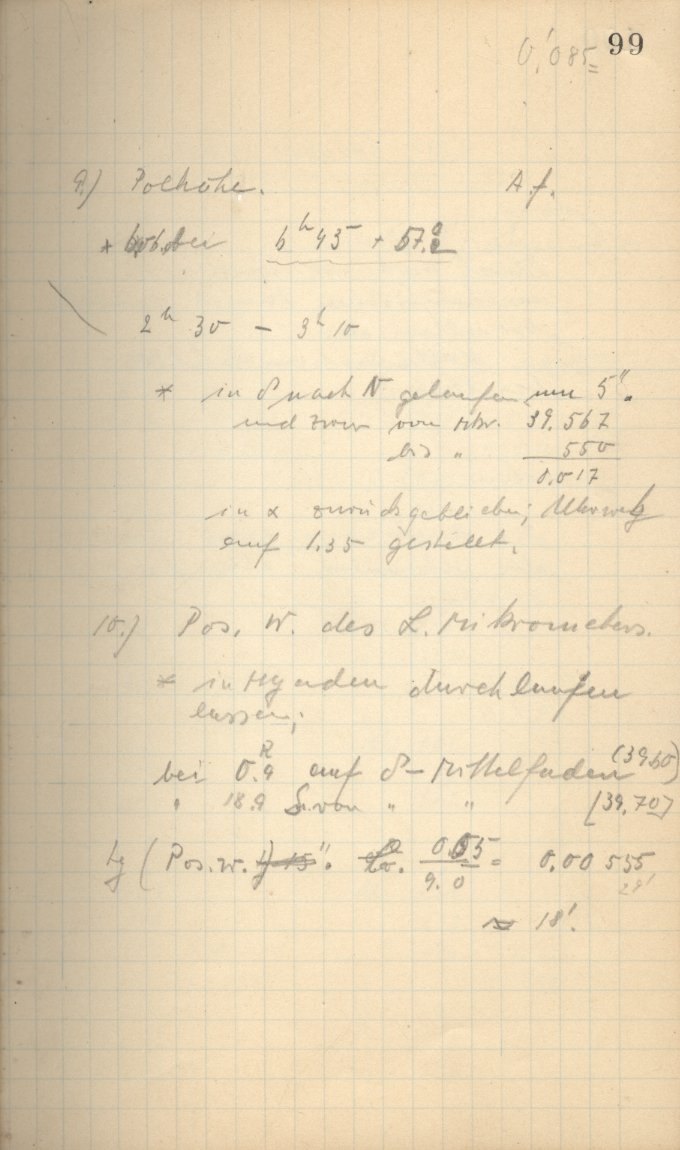 0.'085 99
9.) Polhöhe. A.f.
* bei 6h 45 + 57.2
2h 30 – 3h 10
* in δ nach N gelaufen um 5".
und zwar von Mkr. 39.567
bis " 550
0.017
in α zurückgeblieben; Uhrwerk
auf 1.35 gestellt.
10.) Pos. W. des L. Mikrometers.
* in Hyaden durchlaufen
lassen;
bei 0.R9 auf δ – Mittelfaden (39.60)
" 18.9 S. von " " [39.70]
tg (Pos. w. 0.05 = 0.00555
9.0 28'
≈ 18'.